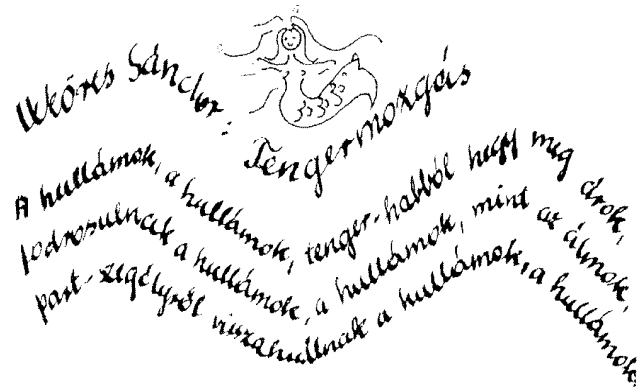 Weöres Sándor:
Tengermozgás
A hullámok, a hullámok, tenger-habból hegy meg árok,
fodrosulnak a hullámok, a hullámok, mint az álmok,
part-szegélyről visszahullnak a hullámok, a hullámok